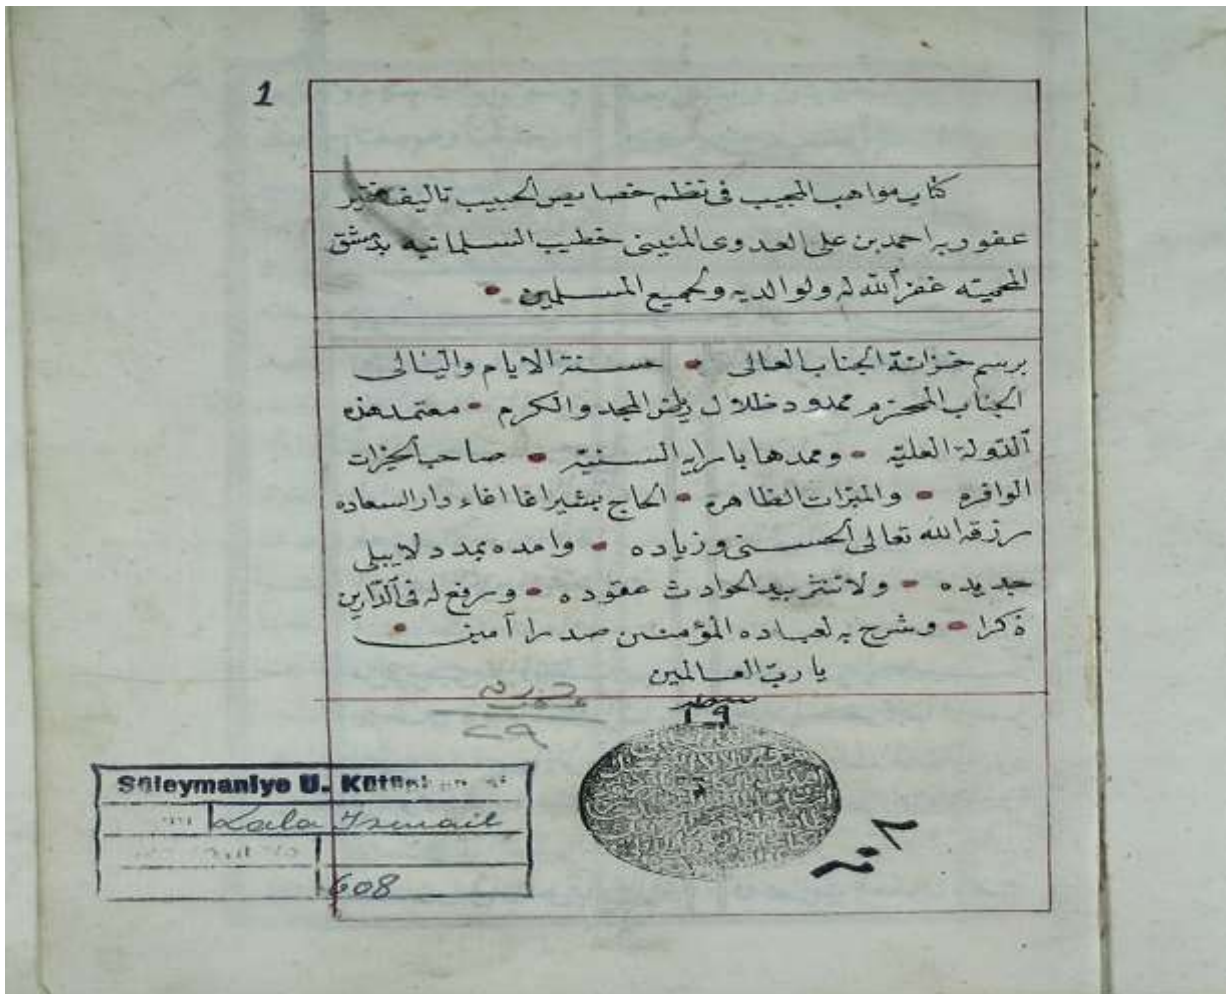 1
كتاب مواهب المجيب فى نظم خصايص الحبيب تاليف فقير
عفو ربه احمد بن على العدوى المنينى خطيب السلمانيه بدمشق
المحميته غفر الله له ولوالديه ولجميع المسلمين
برسم خزانة الجناب العالى حسنة الايام والليالى
الجناب المحترم ممدود ظلال المجد والكرم معتمد هذه
الدولة العلية وممدها باراىه السنية صاحب الخيرات
الوافره والمبرات الظاهرة الحاج بشير اغا اغاء دار السعاده
رزقه الله تعالى الحسنى وزياده وامده بمدد لا يبلى
جديده ولا تنتثر بيد الحوادث عقوده ورفع له فى الدارين
ذكرا وشرح به لعباده المؤمنين صدرا آمين
يا رب العالمين
سطر
١٩
٢٩
٦٠٨
Süleymaniye U. Kütüphanesi
Lala Ismail
608